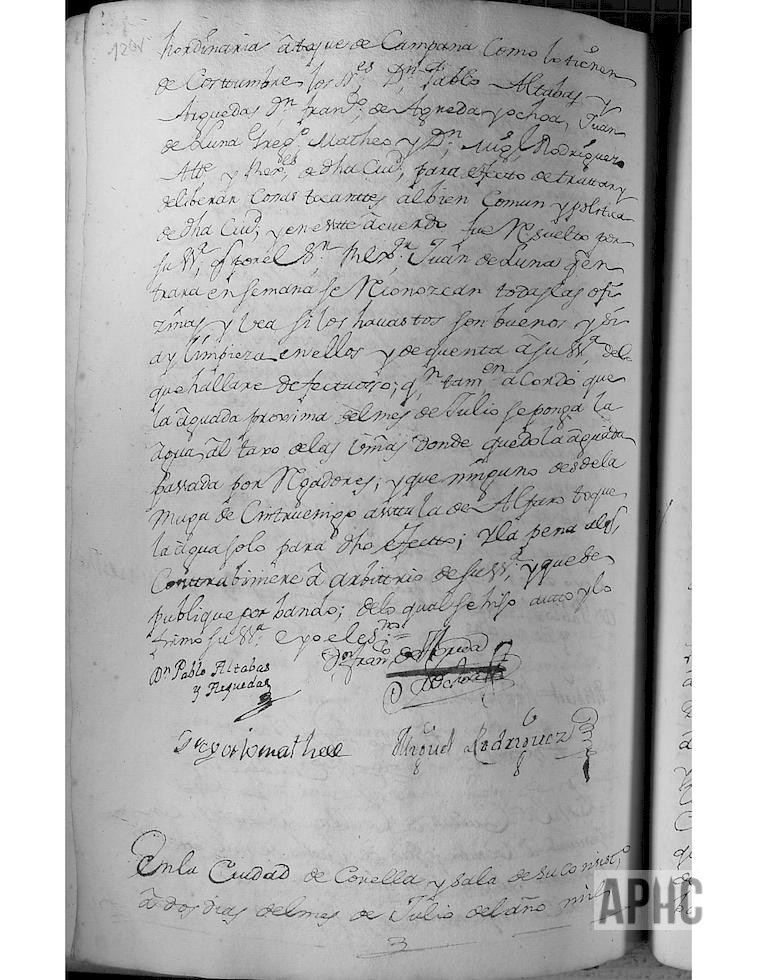 120v
hordinaria â toque de Campana Como lo tienen
de Costumbre los SS.es Dn Pablo Altabas y
Arguedas Dn fran.co de Agreda y ochoa, Juan
de Luna Greg.o Matheo y Dn Mig.l Rodriguez
Alte y Rex.es de dha Ciud, para efecto de tratar y
deliberar Cosas tocantes al bien Comun y politica
de dha Ciud, y en este âcuerdo fue Resuelto por
su SS.a q por el S.r Rex.r Juan de Luna q en
trara en semana se Reconozcan todas las ofi
zinas y vea si los havastos son buenos y si
ay limpieza en ellos y de quenta a su SS.a de lo
que hallare defectuoso; q.n tam.en acordó que
la âguada proxima del mes de Julio se ponga la
âgua âl taxo de las donde quedo la âguada
passada por Regadores; y que ninguno desde la
Muga de Cintruenigo asta la de Alfaro toque
la âgua solo para dho efecto; y la pena al q
Contrabiniere â arbitrio de su SS.a, y que se
publique por bando; de lo qual se hizo auto y lo
firmo su SS.a e yo el es.no =
Dn Pablo Altabas
y Arguedas
Dn fran.co de Agreda
y Ochoa
Gregorio matheo
Miguel Rodriguez
En la Ciudad de Corella y sala de su consist.o
â dos dias del mes de Julio del año mil
APHC